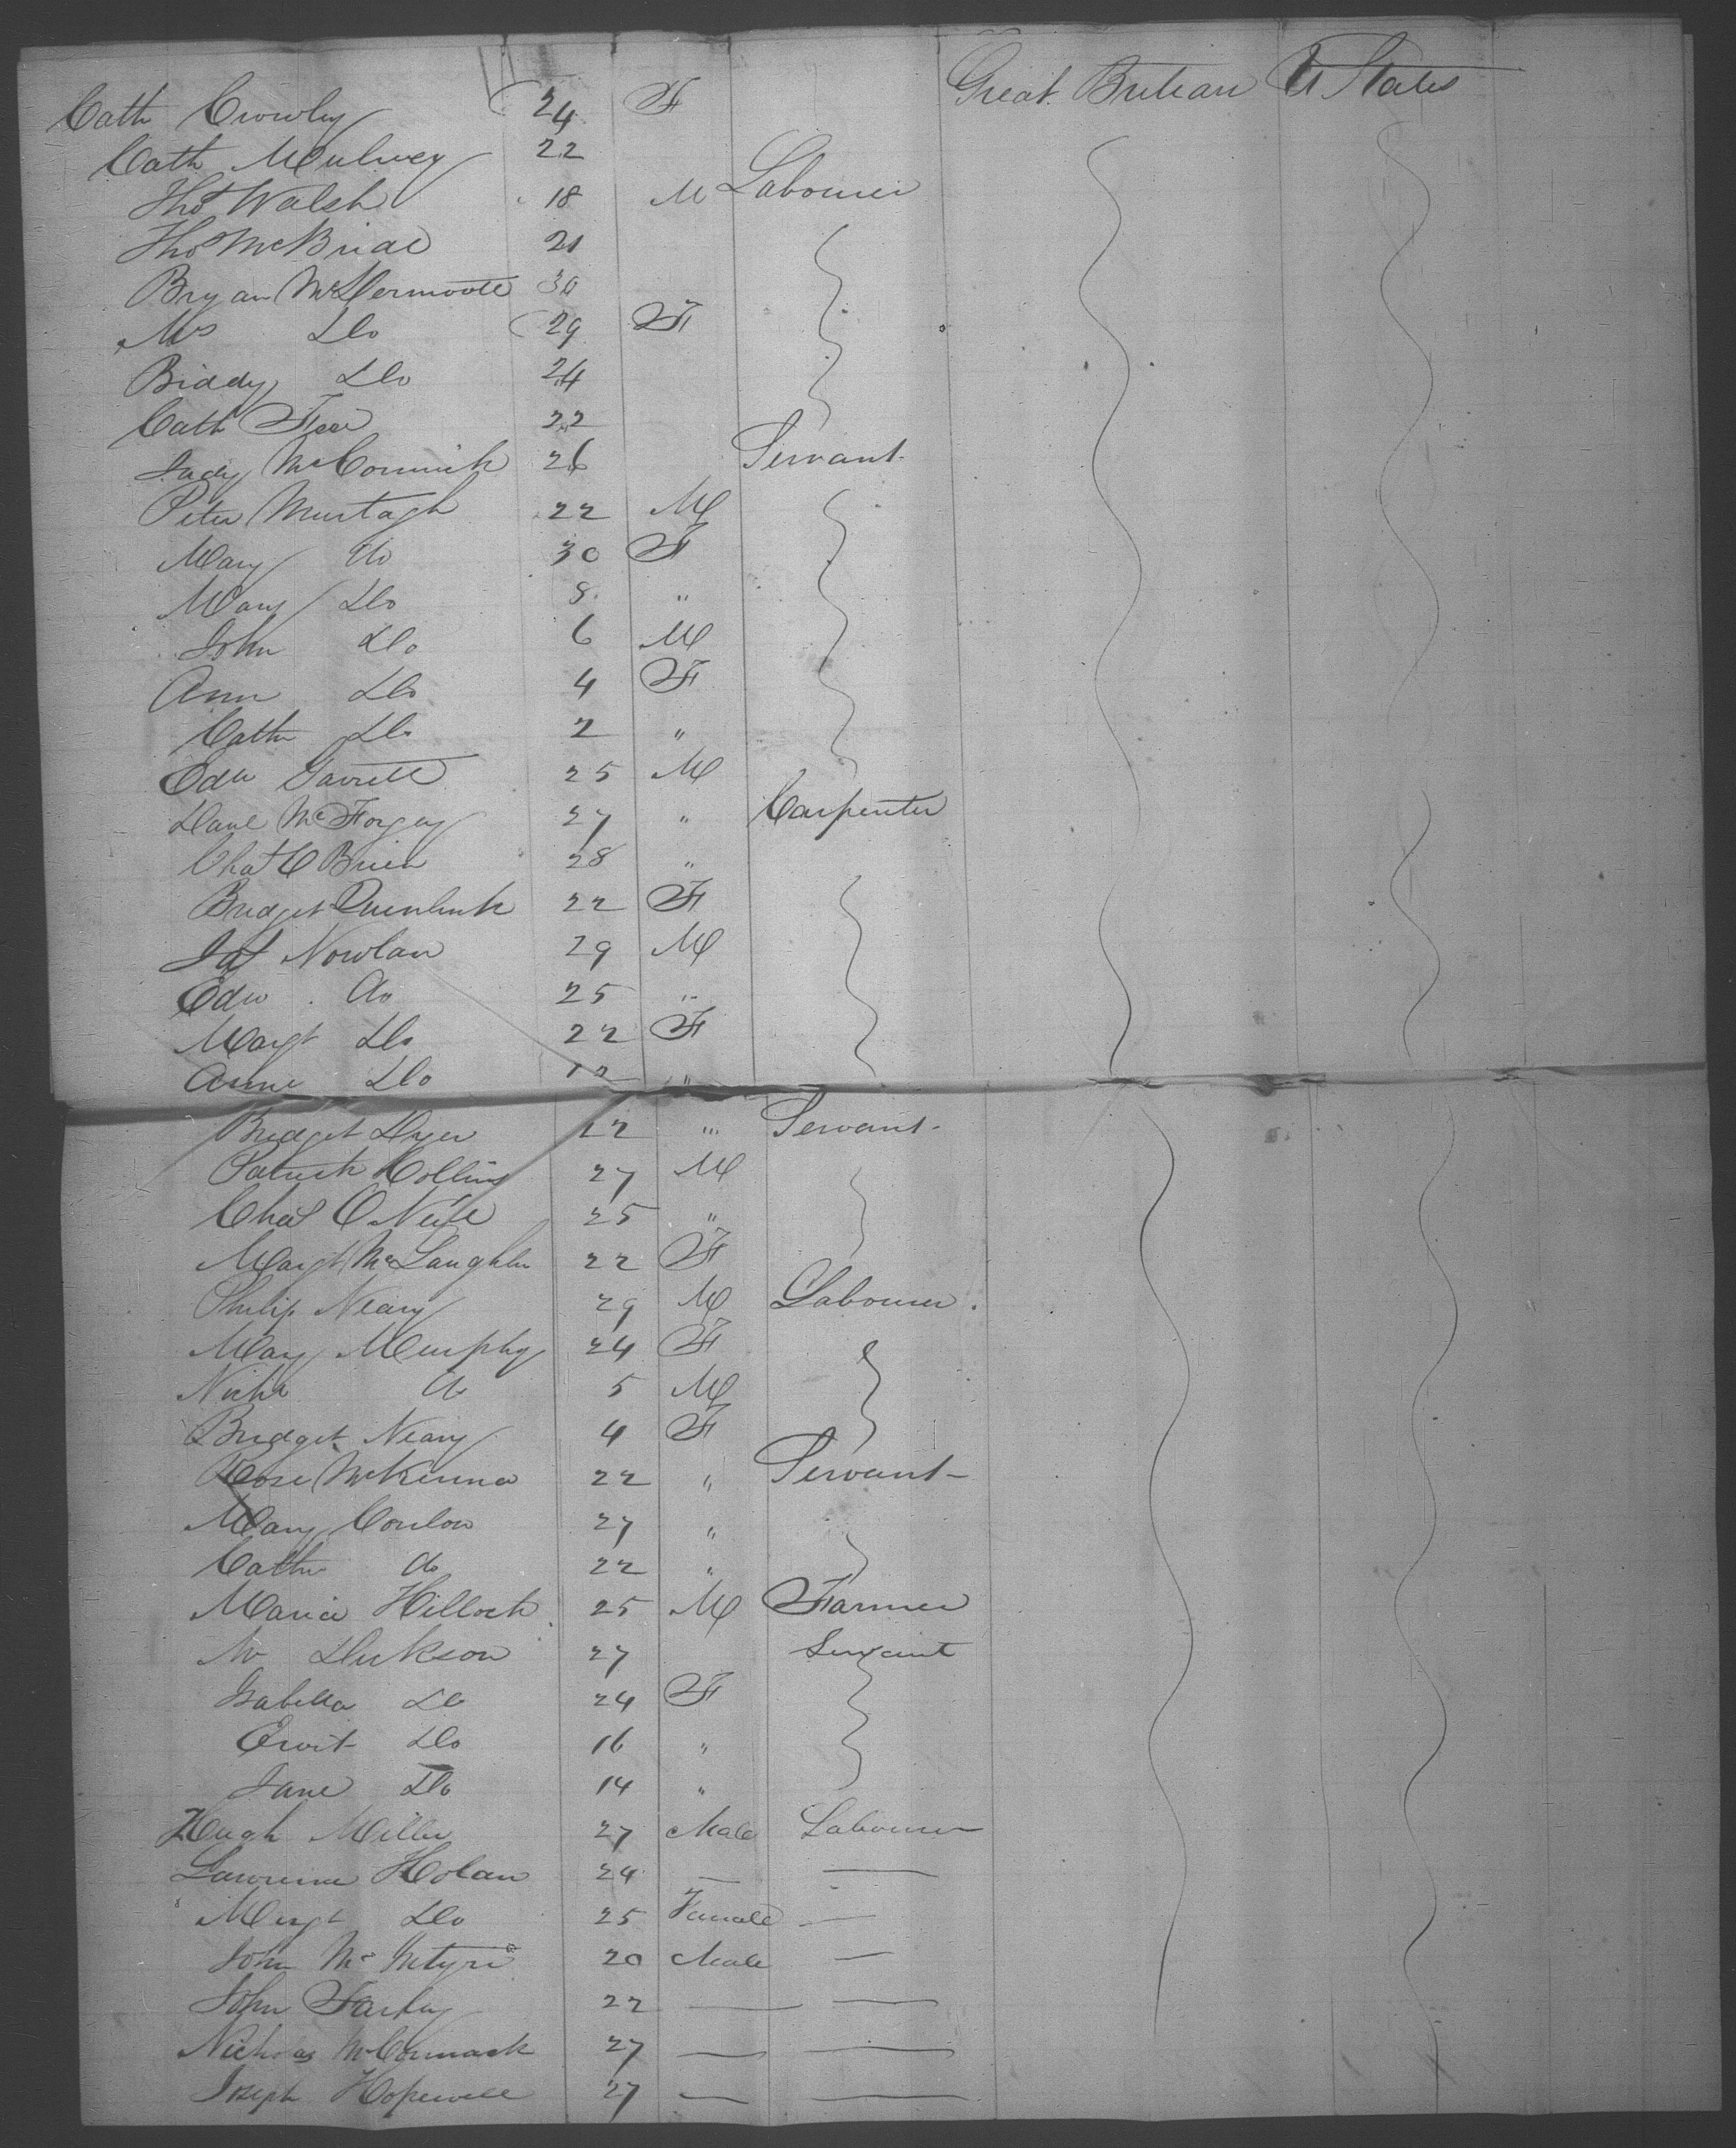 Great Britian U States
Cath Crowley 24 F
Cath Mulvey 22
Thos Walsh 18 M Labourer
Thos McBride 21
Bryan McDermoott 30
Mrs Do 29 F
Biddy Do 24
Cath Fee 22
Judy McCormick 26 Servant
Peter Murtagh 22 M
Mary do 30 F
Mary Do 8 "
John Do 6 M
Ann Do 4 F
Cath Do 2 "
Edw Garrett 25 M
Danl McForgey 27 " Carpenter
Chas O Brien 28 "
Bridget 22 F
Jas Nowlan 29 M
Edw do 25 "
Margt Do 22 F
Anne Do "
Bridget Dyer 22 " Servant
Patrick Collins 27 M
Chas O Neill 25 "
Margt McLaughlin 22 F
Philip Neary 29 M Labourer
Mary Murphy 24 F
Nichs do 5 M
Bridget Neary 4 F
Rose McKenna 22 " Servant
Mary Conlon 27 "
Cathe do 22 "
Maria Hillock 25 M Farmer
Dickson 27 Servant
Isabella Do 24 F
Do 16 "
Jane Do 14 "
Hugh Miller 27 Male Labourer
Lawrence Holan 24
Margt Do 25 Female
John McIntyre 20 Male
John Farley 22
Nicholas McCormack 27
Joseph Hopewell 27